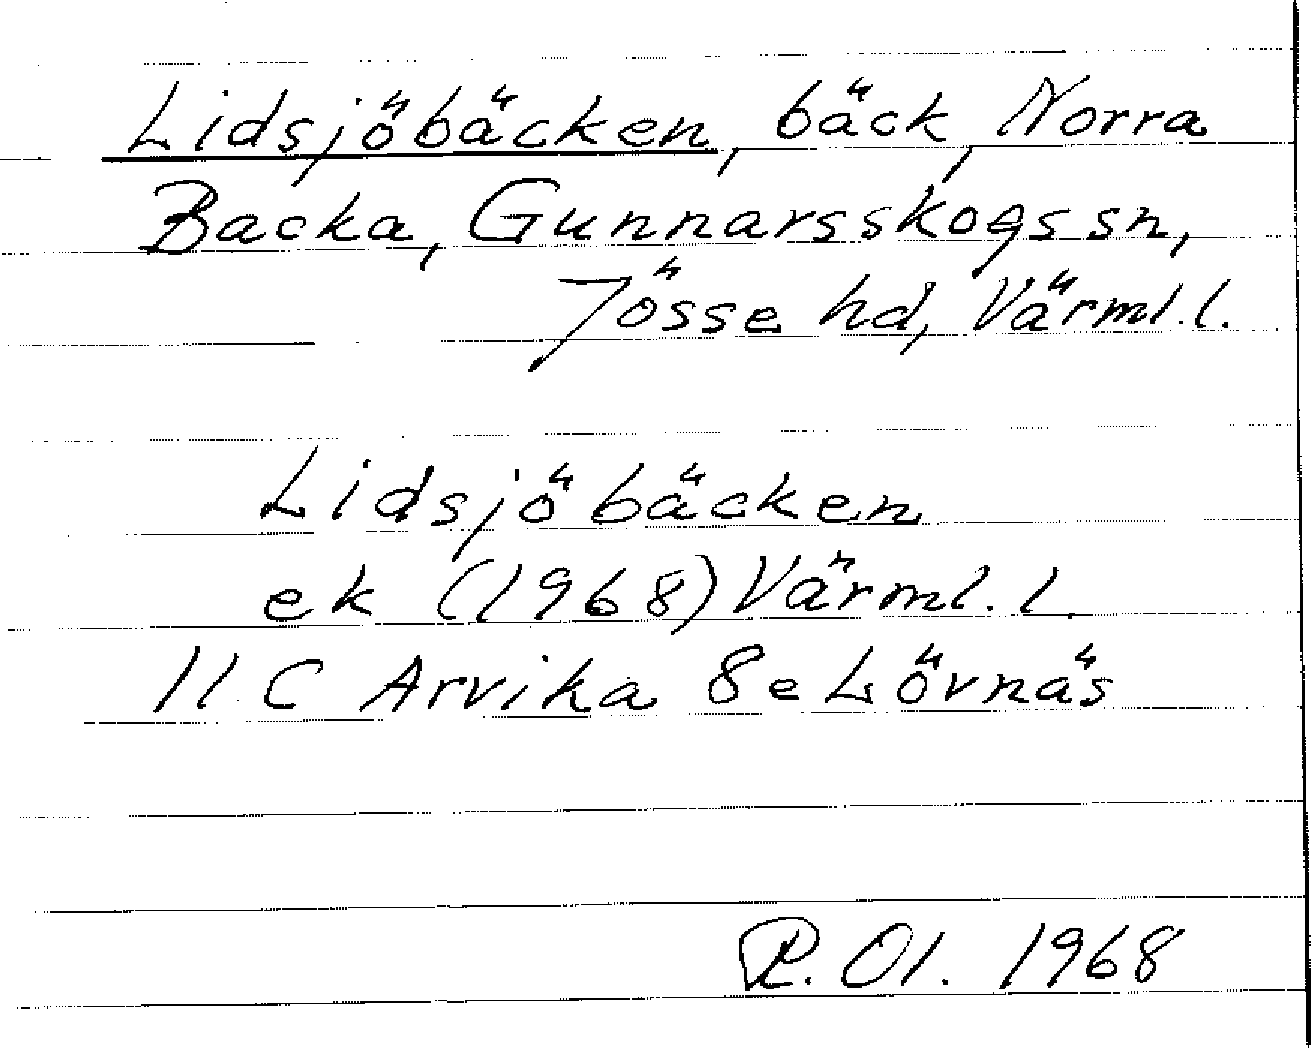 Lidsjöbäcken, bäck, Norra
Backa, Gunnarsskogs sn,
Jösse hd, Värml. l.
Lidsjöbäcken
ek (1968) Värml. l.
11 C Arvika 8e Lövnäs
R. Ol. 1968